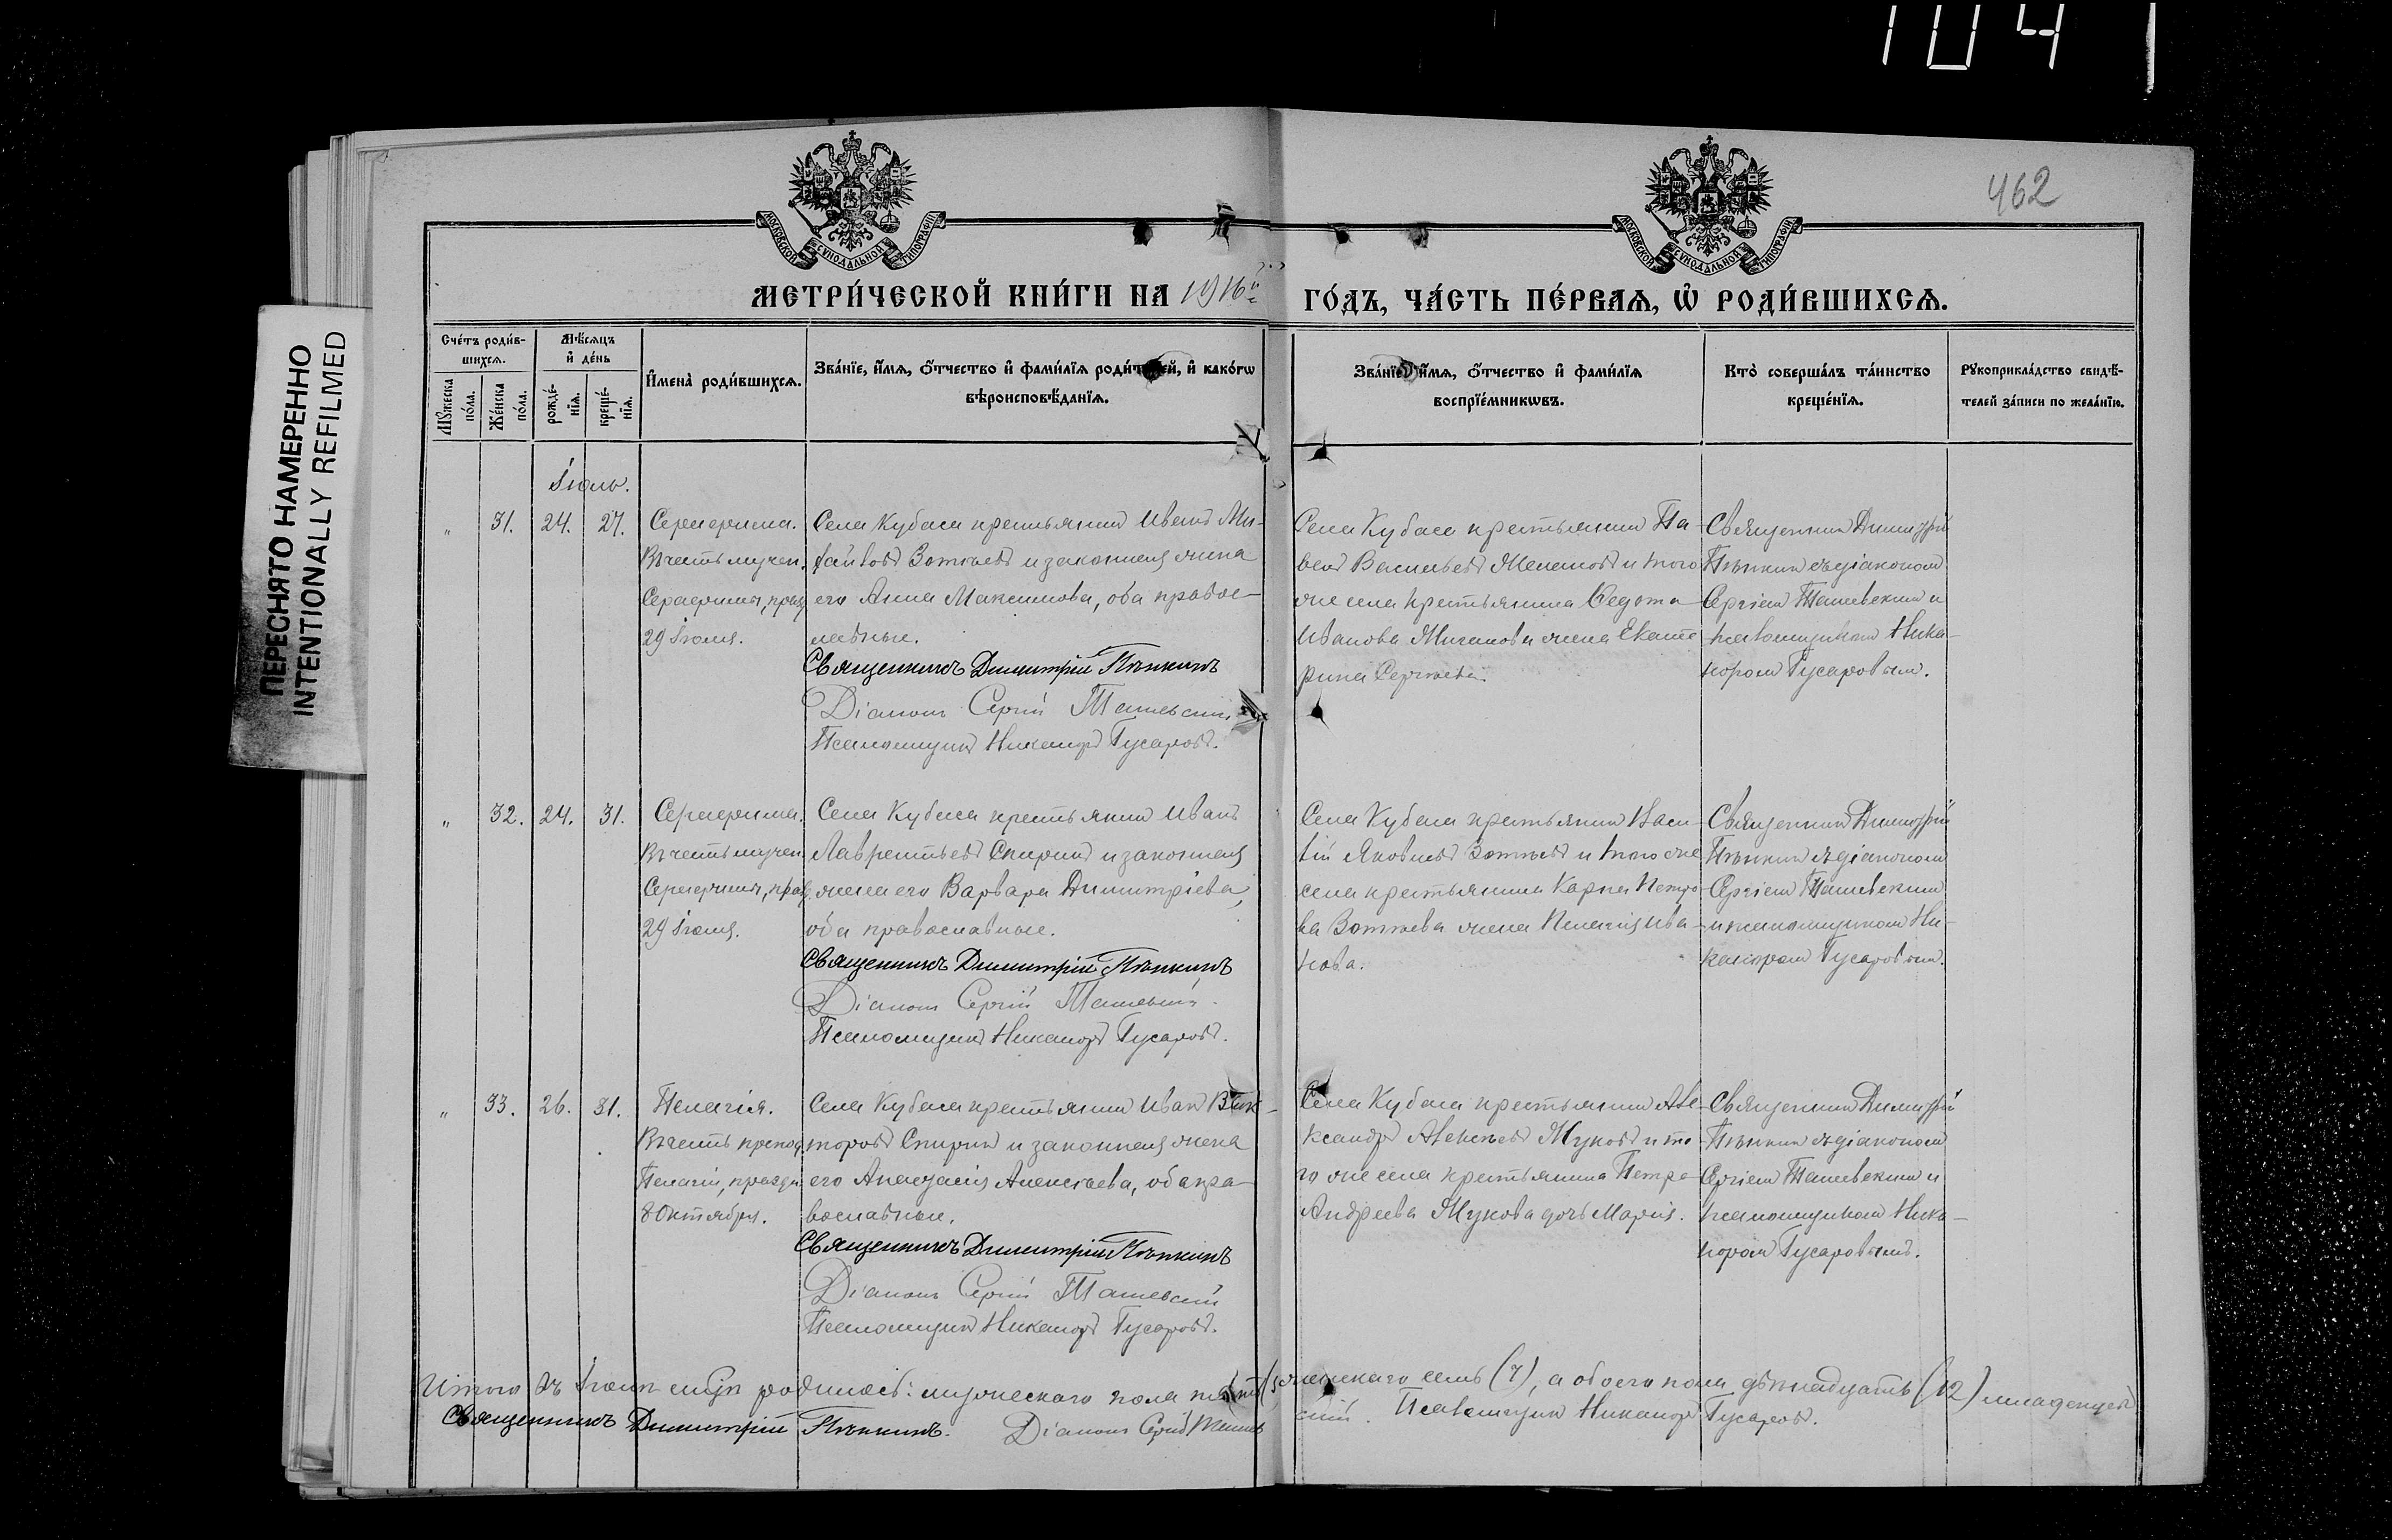 104
462
ПЕРЕСНЯТО НАМЕРЕННО
INTENTIONALLY REFILMED
МОСКОВСКОЙ СѴНОДАЛЬНОЙ ТИПОГРАФІИ
МОСКОВСКОЙ СѴНОДАЛЬНОЙ ТИПОГРАФІИ
МЕТРИ́ЧЕСКОЙ КНИ́ГИ НА 1916й
ГО́ДЪ, ЧА́СТЬ ПЕ́РВАѦ, Ѡ҆ РОДИ́ВШИХСѦ.
Сче́тъ роди́в-
шихсѧ.
Мꙋ́жеска
по́ла.
Же́нска
по́ла.
Мѣ́сѧцъ
и҆ де́нь
рожде́-
нїѧ.
креще́-
нїѧ.
И҆мена̀ роди́вшихсѧ.
Зва́нїе, и҆́мѧ, ѻ҆́тчество и҆ фами́лїѧ роди́телей, и҆ како́гѡ
вѣроисповѣ́данїѧ.
Зва́нїе, и҆́мѧ, ѻ҆́тчество и҆ фами́лїѧ
воспрїе́мникѡвъ.
Кто̀ соверша́лъ та́инство
креще́нїѧ.
Рꙋкоприкла́дство свидѣ́-
телей за́писи по жела́нїю.
Іюль.
" 31. 24. 27.
Серафима.
Въ честь мучен.
Серафимы, празд
29 Іюля.
Села Кубаса крестьянин Иван Ми-
хайлов Зотьев и законная жена
его Анна Максимова, оба правос-
лавные.
Священникъ Димитрій Пѣнкинъ
Діакон Сергій Ташевскій
Псаломщик Никанор Гусаров.
Села Кубаса крестьянин Па-
вел Васильев и того
же села крестьянина Федота
Иванова жена Екате
рина Сергѣева.
Священник Димитрій
Пѣнкин съ діаконом
Сергіем Ташевским и
псаломщиком Ника-
нором Гусаровым.
" 32. 24. 31.
Серафима.
Въ честь мучен.
Серафимы, празд
29 Іюля.
Села Кубаса крестьянин Иван
Лаврентьев Спирин и законная
жена его Варвара Димитріева,
оба православные.
Священникъ Димитрій Пѣнкинъ
Діакон Сергій Ташевскій.
Псаломщик Никанор Гусаров.
Села Кубаса крестьянин Васи
лій Яковлев Зотьев и того же
села крестьянина Карпа Петро
ва Зотьева жена Пелагія Ива-
нова.
Священник Димитрій
Пѣнкин съ діаконом
Сергіем Ташевским
и псаломщиком Ни-
канором Гусаровым.
" 33. 26. 31.
Пелагія.
Въ честь препод.
Пелагіи, праздн
8 Октября.
Села Кубаса крестьянин Иван Вик-
торов Спирин и законная жена
его Анастасія Алексѣева, оба пра-
вославные.
Священникъ Димитрій Пѣнкинъ
Діакон Сергій Ташевскій
Псаломщик Никанор Гусаров.
Села Кубаса крестьянин Але-
ксандр Алексѣев Жуков и то
го же села крестьянина Петра
Андреева Жукова дочь Марія.
Священник Димитрій
Пѣнкин съ діаконом
Сергіем Ташевским и
псаломщиком Ника-
нором Гусаровым.
Итого въ Іюлѣ родилось: мужескаго пола пять (5), женскаго семь (7), а обоего пола двѣнадцать (12) младенцев
Священникъ Димитрій Пѣнкинъ. Діакон Сергій Ташевскій. Псаломщик Никанор Гусаров.